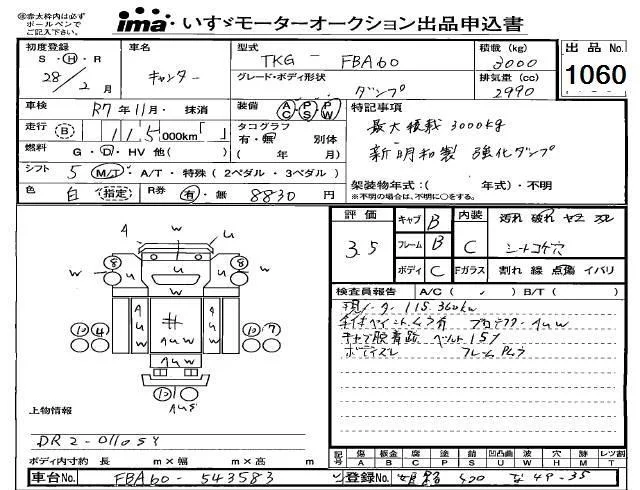 ※赤太枠内は必ず
ボールペンで
ご記入下さい。
ima いすゞモーターオークション出品申込書
初度登録 車名 型式 積載(kg) 出品No.
S・H・R 28/2月 キャンター TKG - FBA60 3000 1060
グレード・ボディ形状 ダンプ 排気量(cc) 2990
車検 R7年11月・抹消 装備 AC PS PW 特記事項
走行 B 115,000km「 」 タコグラフ 有・無 別体 (年 月) 最大積載3000kg
燃料 G・D・HV 他( ) 新明和製 強化ダンプ
シフト 5 M/T・A/T・特殊(2ペダル・3ペダル) 架装物年式:( 年式)・不明
色 白 指定 R券 有・無 8830円 ※不明の場合は、不明に○をする。
評価 キャブ B 内装 汚れ 破れ ヤニ スレ
3.5 フレーム B C シートコゲ穴
ボディ C Fガラス 割れ 線 点傷 イバリ
A W U
W 8 U U 8 W
W
A U W # A U W
10 4 A U W 10 7
A U W
10
A U S
検査員報告 A/C( ) B/T( )
現メーター 115,360km
キャブ脱着跡 ベルト
上物情報
DR2-01105Y
ボディ内寸約 長 m×幅 m×高 m
記号 傷A 板金B 腐C 塗P 錆S 凹凸曲U 波W 穴H 跡M レンズ割T
車台No. FBA60-543583 登録No. 姫路 400 な 49-35